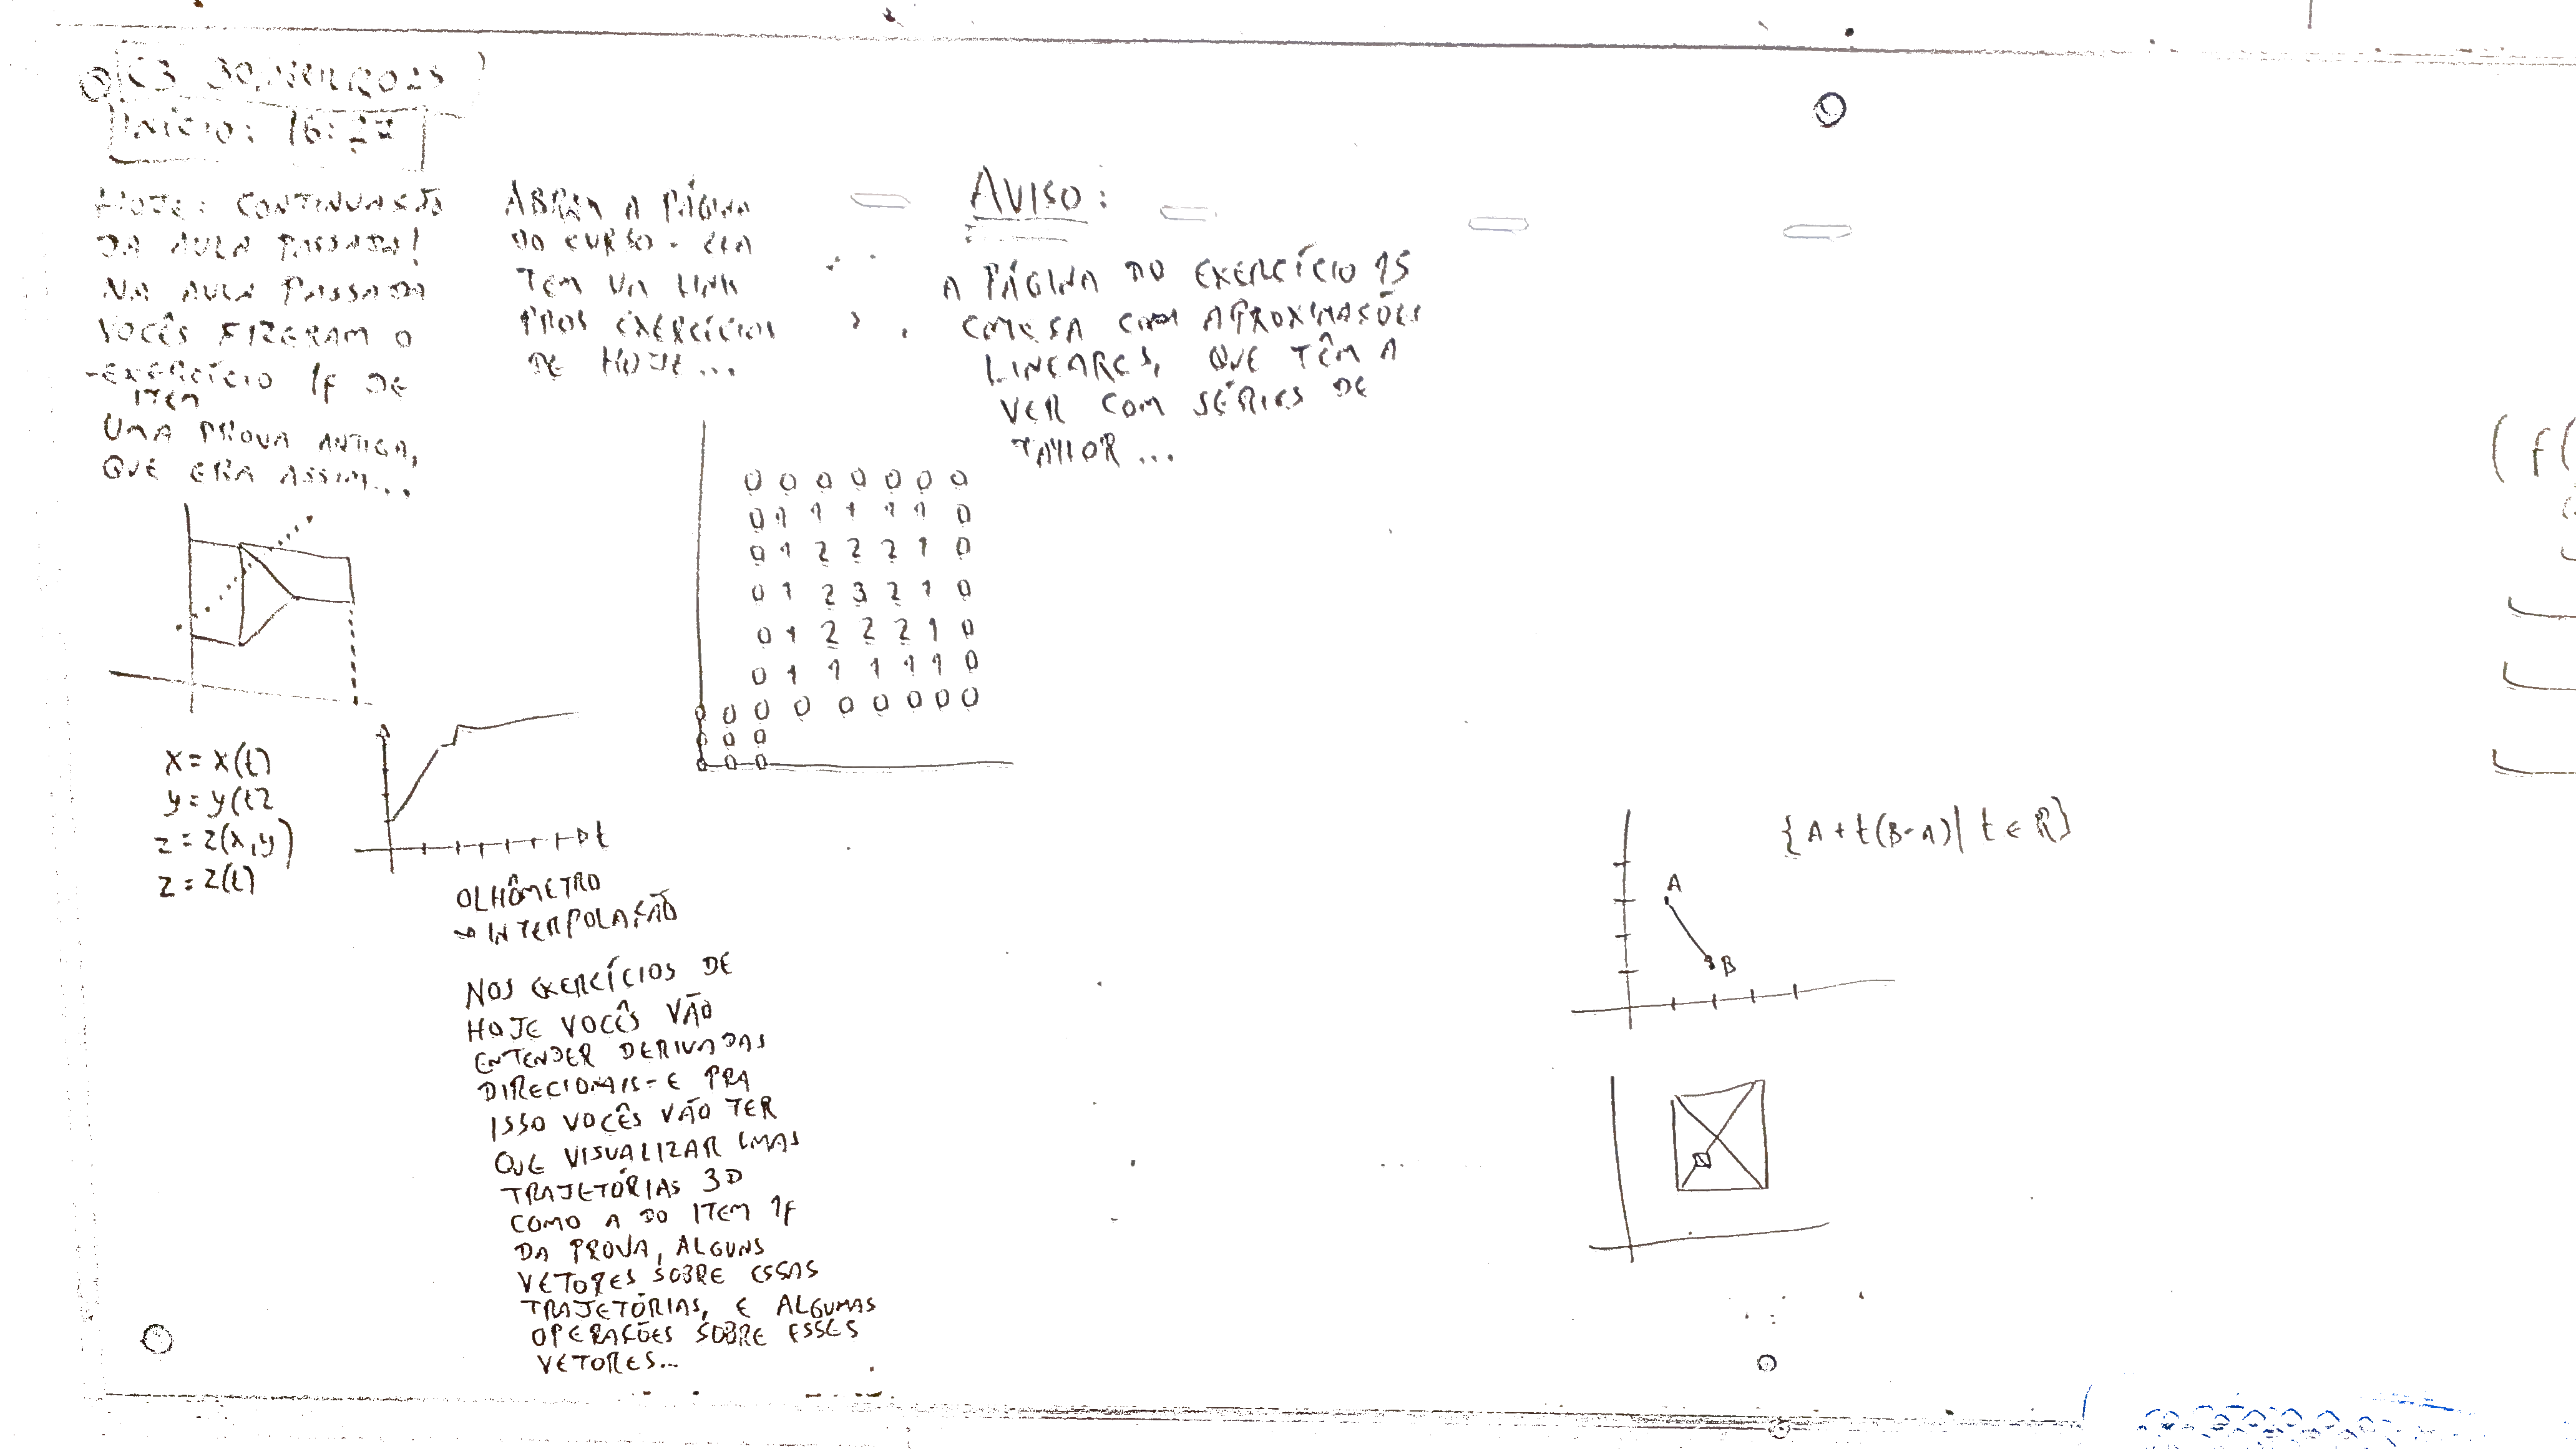 C3 30/ABRIL/2025
INÍCIO: 16:27
HOJE: CONTINUAÇÃO
DA AULA PASSADA!
NA AULA PASSADA
VOCÊS FIZERAM O
EXERCÍCIO 1f DE
ITEM
UMA PROVA ANTIGA,
QUE ERA ASSIM...
x = x(t)
y = y(t)
z = z(x,y)
z = z(t)
t
OLHÔMETRO
→ INTERPOLAÇÃO
NOS EXERCÍCIOS DE
HOJE VOCÊS VÃO
ENTENDER DERIVADAS
DIRECIONAIS - E PRA
ISSO VOCÊS VÃO TER
QUE VISUALIZAR UMAS
TRAJETÓRIAS 3D
COMO A DO ITEM 1f
DA PROVA, ALGUNS
VETORES SOBRE ESSAS
TRAJETÓRIAS, E ALGUMAS
OPERAÇÕES SOBRE ESSES
VETORES...
ABRAM A PÁGINA
DO CURSO - ELA
TEM UM LINK
PROS EXERCÍCIOS
DE HOJE...
0 0 0 0 0 0 0
0 1 1 1 1 1 0
0 1 2 2 2 1 0
0 1 2 3 2 1 0
0 1 2 2 2 1 0
0 1 1 1 1 1 0
0 0 0 0 0 0 0 0 0
0 0 0
0 0 0
AVISO:
A PÁGINA DO EXERCÍCIO 15
COMEÇA COM APROXIMAÇÕES
LINEARES, QUE TÊM A
VER COM SÉRIES DE
TAYLOR...
{A + t(B-A) | t ∈ R}
A
B
(f(